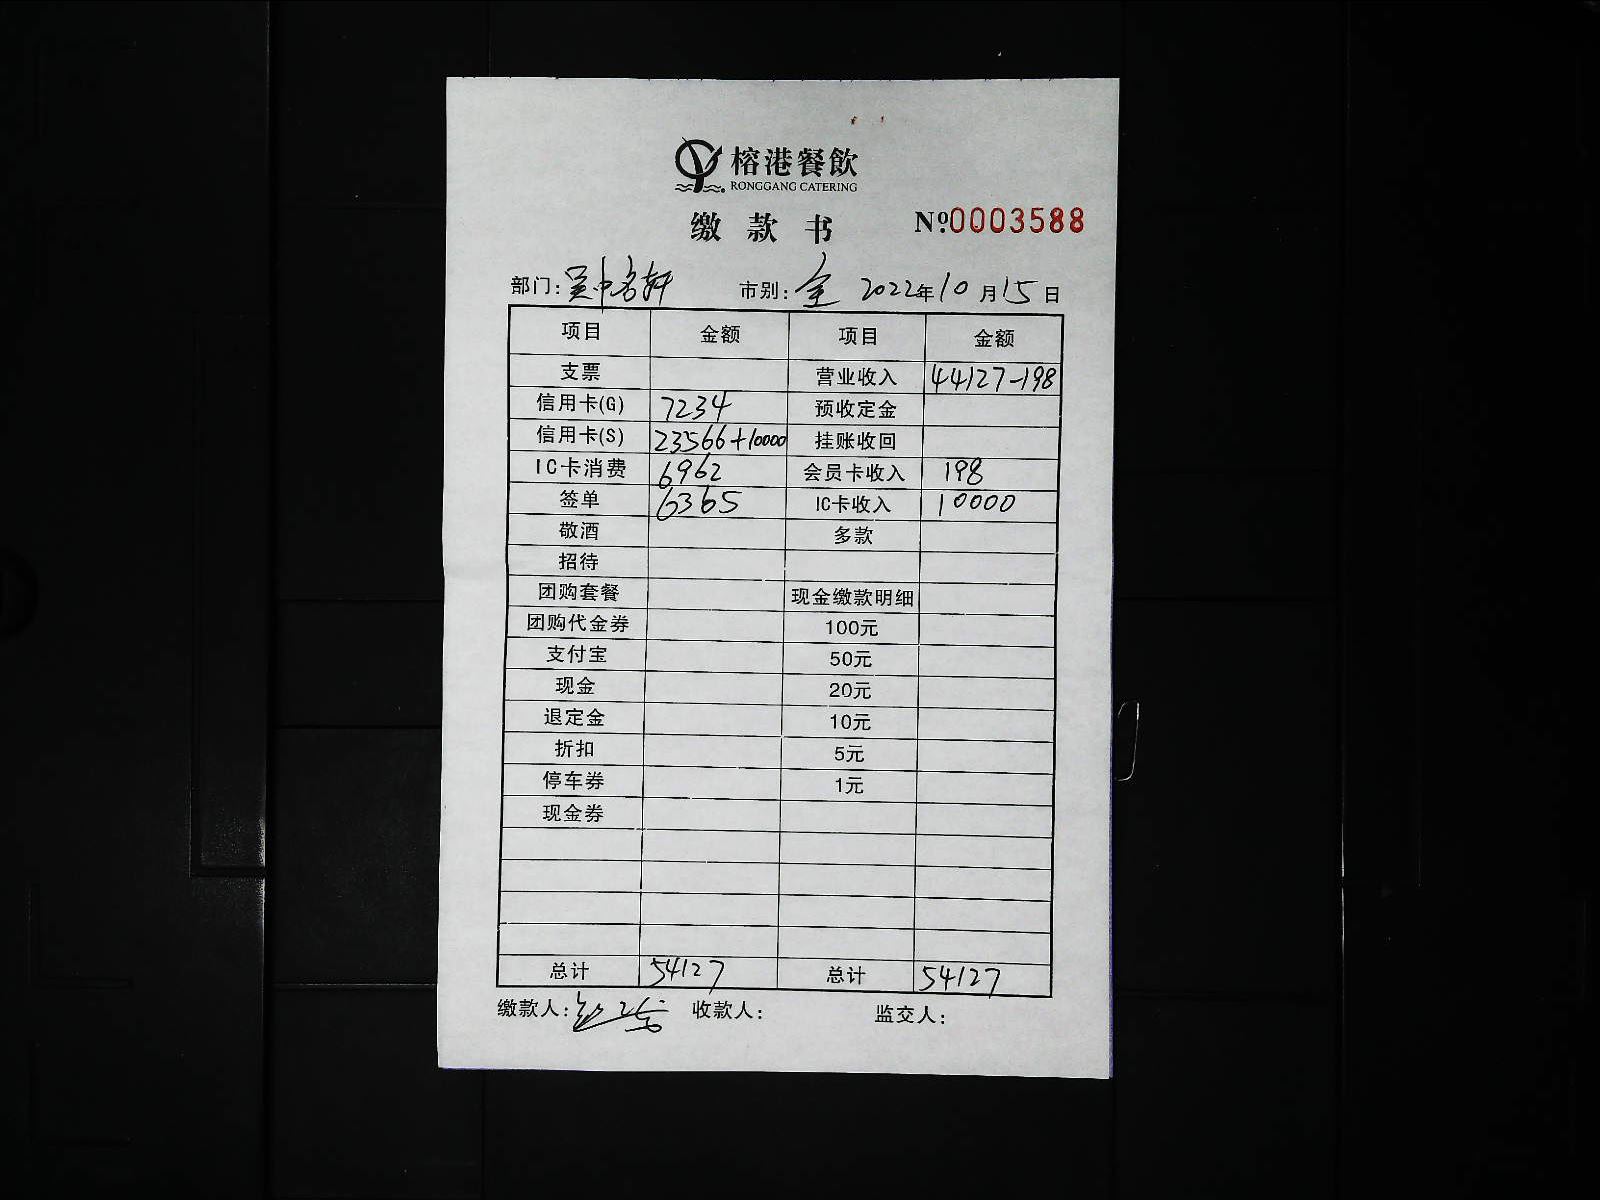 榕港餐飲
RONGGANG CATERING
缴款书 №0003588
部门：吴中名轩 市别：全 2022年10月15日
项目 金额 项目 金额
支票 营业收入 44127-198
信用卡(G) 7234 预收定金
信用卡(S) 23566+10000 挂账收回
IC卡消费 6962 会员卡收入 198
签单 6365 IC卡收入 10000
敬酒 多款
招待
团购套餐 现金缴款明细
团购代金券 100元
支付宝 50元
现金 20元
退定金 10元
折扣 5元
停车券 1元
现金券
总计 54127 总计 54127
缴款人： 收款人： 监交人：